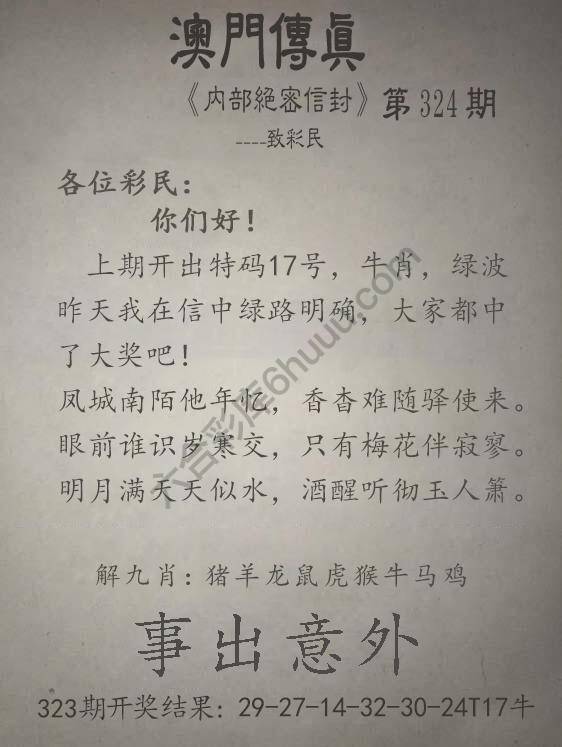 澳門傳眞
《内部絕密信封》第324期
----致彩民
各位彩民：
你们好！
上期开出特码17号，牛肖，绿波
昨天我在信中绿路明确，大家都中
了大奖吧！
凤城南陌他年忆，香杳难随驿使来。
眼前谁识岁寒交，只有梅花伴寂寥。
明月满天天似水，酒醒听彻玉人箫。
解九肖：猪羊龙鼠虎猴牛马鸡
事出意外
323期开奖结果：29-27-14-32-30-24T17牛
六合彩库6huuu.com